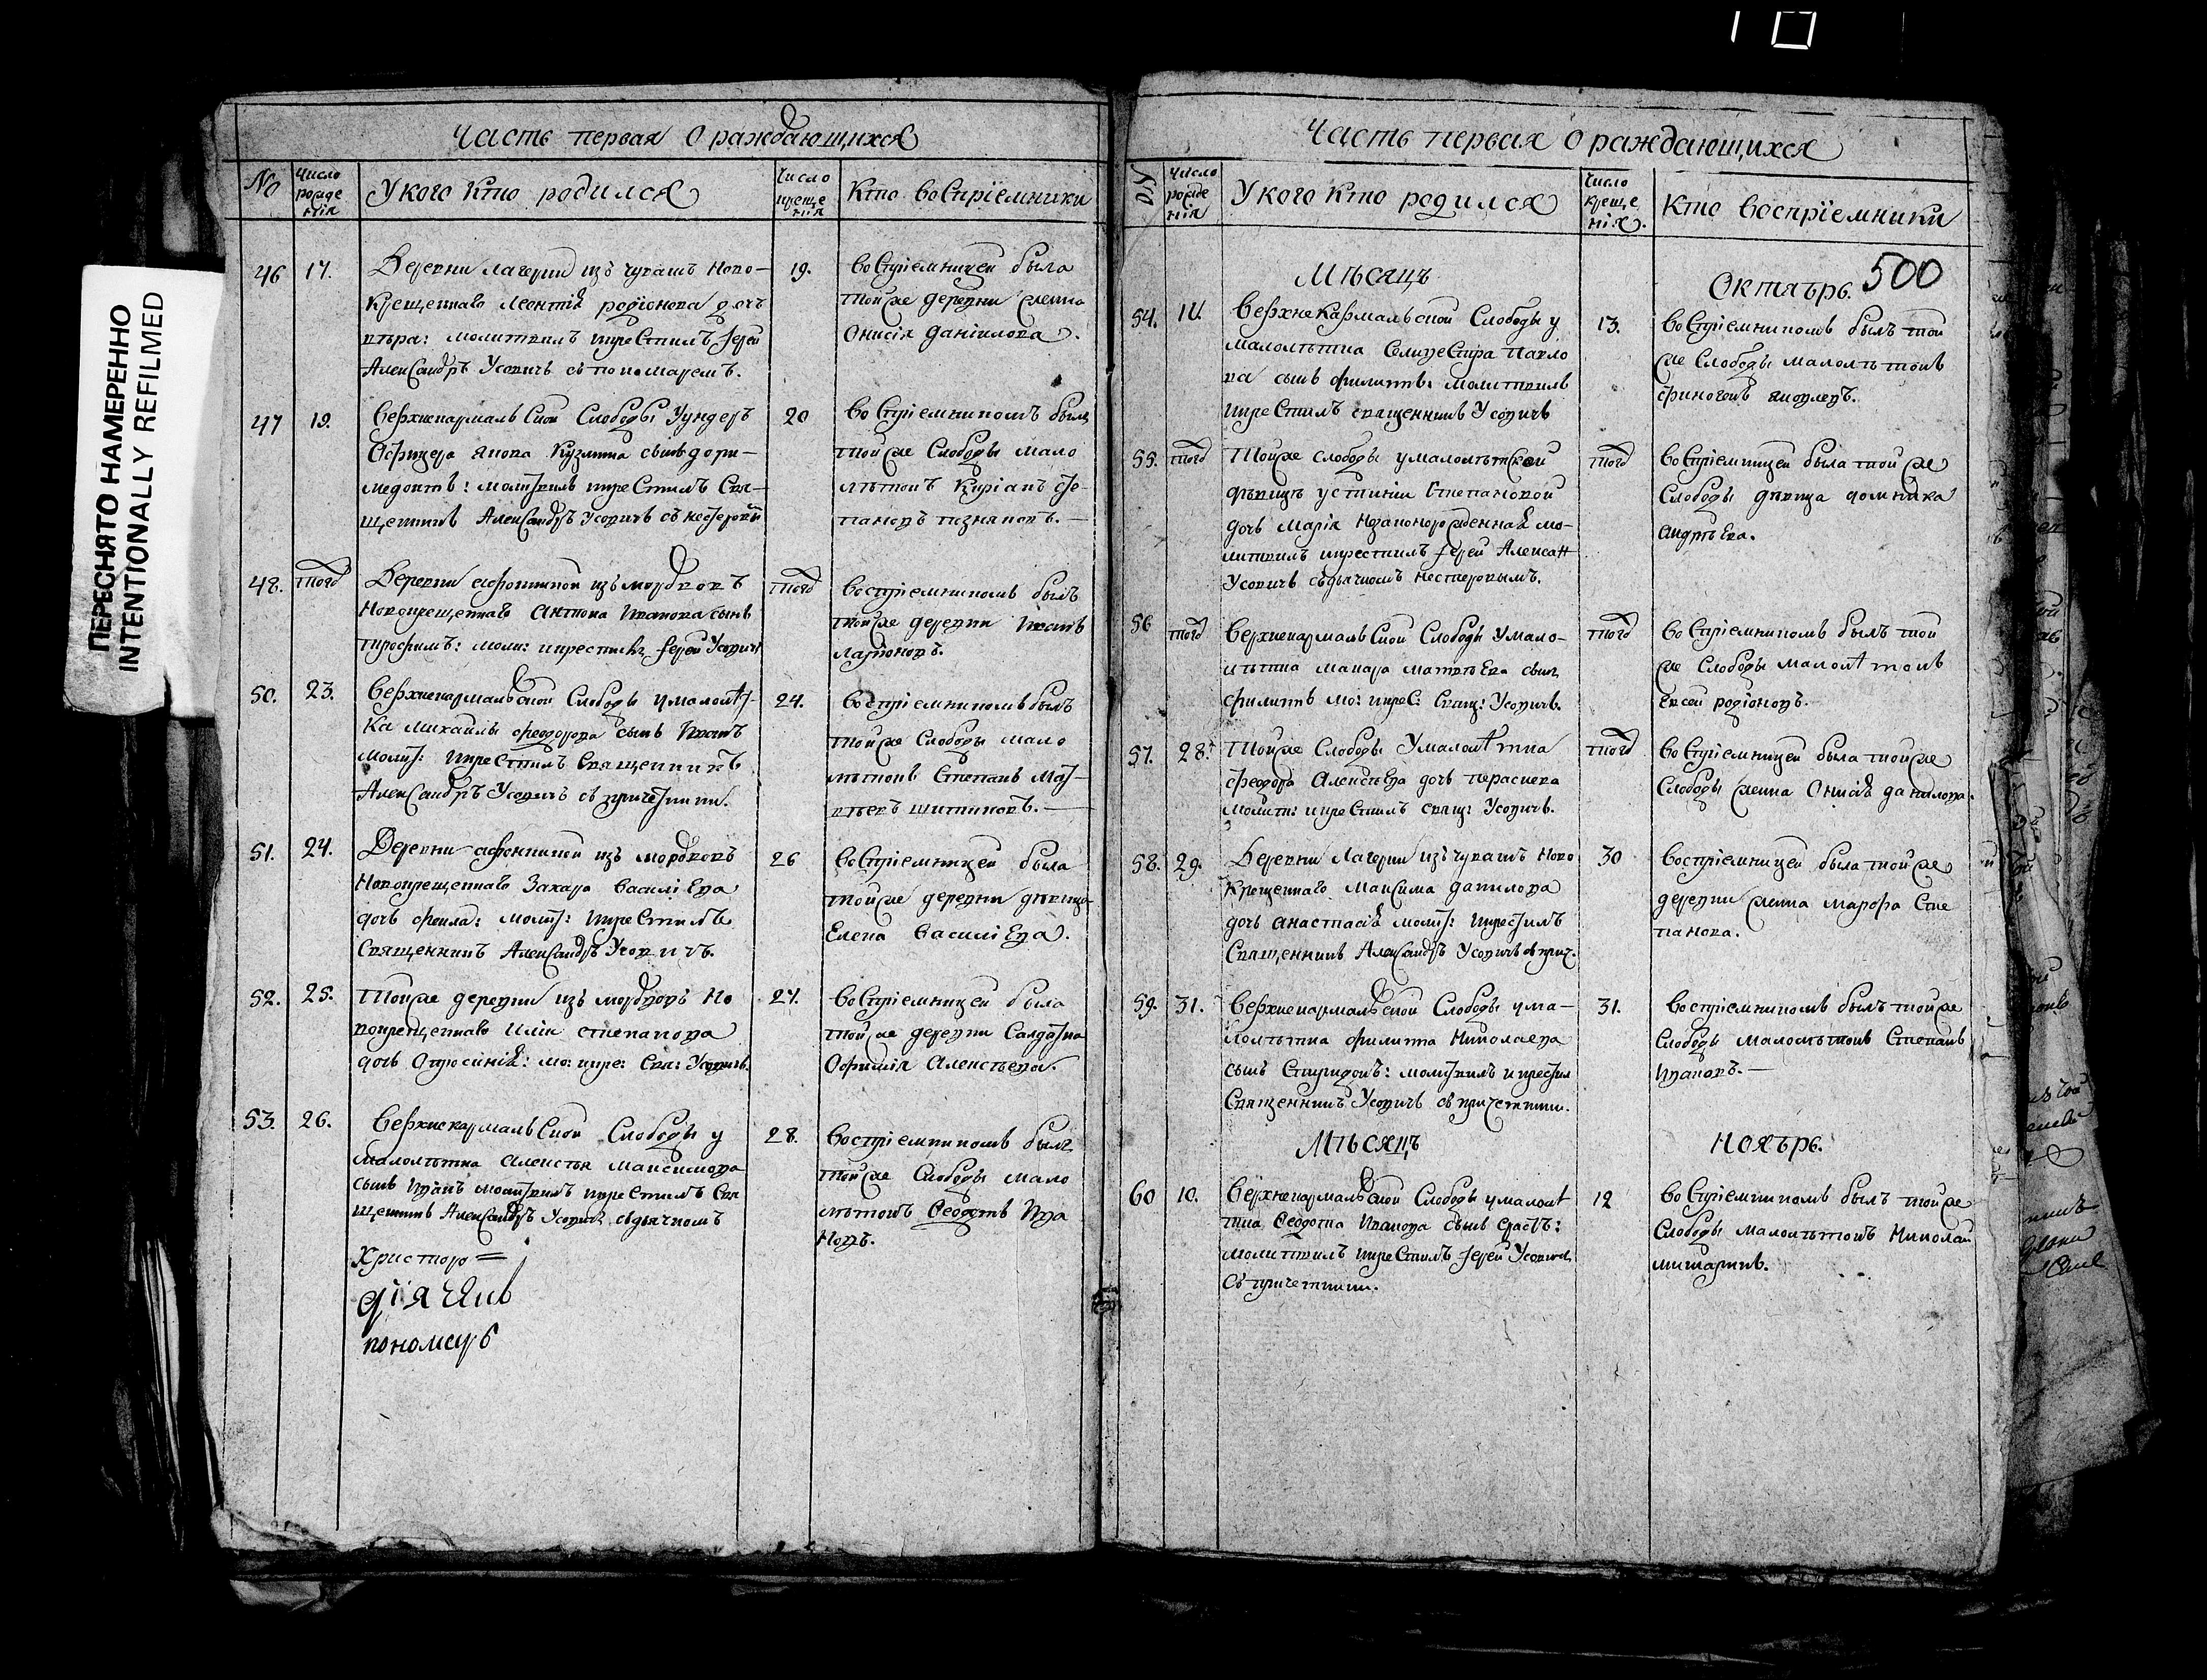 ПЕРЕСНЯТО НАМЕРЕННО
INTENTIONALLY REFILMED
Часть первая О раждающихся
No
Число рожде нія
У кого кто родился
Число креще нія
Кто воспріемники
46
17.
Деревни лагерни изъ чувашъ ново-
крещеннаго Леонтія родіонова дочь
молитвилъ икрестилъ іерей
Александръ Усовичъ съ пономаремъ.
19.
воспріемницей была
тойже деревни жена
Онисія даніилова.
47
19.
Верхнекармальской Слободы У ундеръ
Офицера якова Кузмина сынъ дори-
медонтъ: молитвилъ икрестилъ Свя-
щенникъ Александръ Усовичъ съ нестеровымъ
20
воспріемникомъ былъ
тойже Слободы мало
лѣтокъ Киріакъ Сте-
пановъ
48.
тогд
Деревни афонкиной изъ мордвовъ
новокрещеннаго Антона Иванова сынъ
трофимъ: моли: икрестилъ іерей Усовичъ
тогд
воспріемникомъ былъ
тойже деревни Иванъ
Ларіоновъ.
50.
23.
Верхнекармальской Слободы у малолѣт-
ка михаилы феодорова сынъ Иванъ
молит: икрестилъ Священникъ
Александръ Усовичъ съ причетники.
24.
воспріемникомъ былъ
тойже Слободы мало
лѣтокъ Степанъ Мат-
вѣевъ шитиковъ.
51.
24.
Деревни афонкиной изъ мордвовъ
новокрещеннаго Захара Василіева
дочь фекла: молит: икрестилъ
Священникъ Александръ Усовичъ.
26
воспріемницей была
тойже деревни дѣвица
Елена Василіева.
52.
25.
Тойже деревни изъ мордвовъ но
вокрещеннаго Иліи степанова
дочь Опросинія: мо: икре: Свя: Усовичъ.
27.
воспріемницей была
тойже деревни Салдатка
Офимія Алексѣева.
53.
26.
Верхнекармальской Слободы у
малолѣтка алексѣя максимова
сынъ Иванъ молитвилъ икрестилъ Свя
щенникъ Александръ Усовичъ съдьячкомъ
Христоро=
діячекъ
пономарь
28.
воспріемникомъ былъ
тойже Слободы мало
лѣтокъ Феодотъ Ива
новъ.
Часть первая О раждающихся
Число рожде нія
У кого кто родился
Число креще нія.
Кто воспріемники
500
Мѣсяцъ
Октябрь.
54.
11.
Верхнекармальской Слободы у
малолѣтка Селивестра Павло
ва сынъ филиппъ: молитвилъ
икрестилъ священникъ Усовичъ
13.
воспріемникомъ былъ той
же Слободы малолѣтокъ
финогенъ яковлевъ.
55.
тогд
Тойже слободы у малолѣтской
дѣвицы устиніи Степановой
дочь Марія незаконорожденная мо-
литвилъ икрестилъ іерей Алексан
Усовичъ съдьячкомъ нестеровымъ.
тогд
воспріемницей была тойже
Слободы дѣвица домника
андрѣева.
56
тогд
Верхнекармальской Слободы у мало-
лѣтка макара матвѣева сынъ
филиппъ мо: икрес: Свящ: Усовичъ.
тогд
воспріемникомъ былъ той
же Слободы малолѣтокъ
Евсей родіоновъ.
57.
28.
Тойже Слободы У малолѣтка
феодора Алексѣева дочь параскева
молитв: икрестилъ свящ: Усовичъ.
тогд
воспріемницей была тойже
Слободы жена Онисія данилова.
58.
29.
Деревни Лагерни изъ чувашъ ново
крещеннаго максима данилова
дочь анастасія молит: икрестилъ
Священникъ Александръ Усовичъ съ прич.
30
воспріемницей была тойже
деревни жена марфа Сте
панова.
59.
31.
Верхнекармальской Слободы у ма-
лолѣтка филиппа Николаева
сынъ Спиридонъ: молитвилъ икрестил
Священникъ Усовичъ съ причетники.
31.
воспріемникомъ былъ тойже
Слободы малолѣтокъ Степанъ
Ивановъ.
Мѣсяцъ
Ноябрь.
60
10.
Верхнекармальской Слободы у малолѣ
тка Феодота Иванова сынъ Ерастъ:
молитвилъ икрестилъ іерей Усовичъ
Съ причетники.
12
воспріемникомъ былъ тойже
Слободы малолѣтокъ Николай